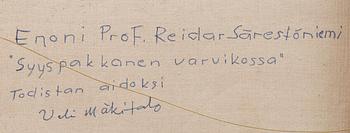 Enoni Prof. Reidar Särestöniemi
"Syyspakkanen varvikossa"
Todistan aidoksi
Veli Mäkitalo